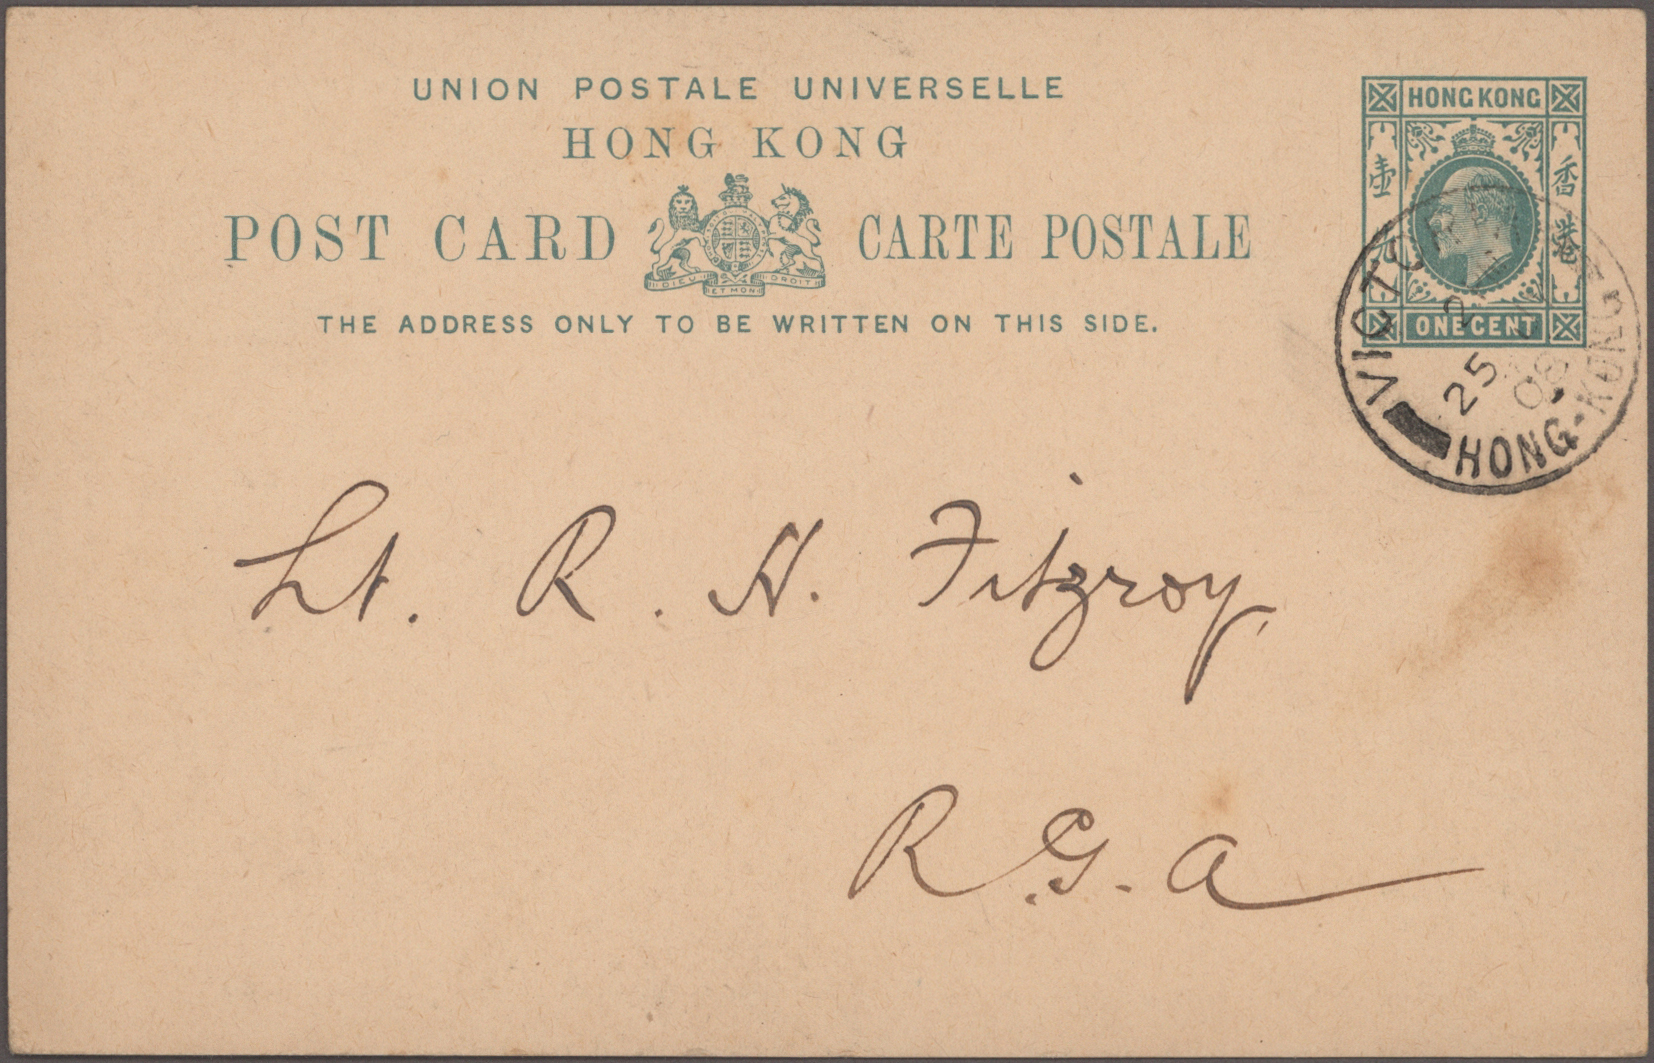 UNION POSTALE UNIVERSELLE
HONG KONG
POST CARD CARTE POSTALE
DIEU ET MON DROIT
THE ADDRESS ONLY TO BE WRITTEN ON THIS SIDE.
HONG KONG
壺
香港
ONE CENT
VICTORIA
25
08
HONG-KONG
Lt. R. H. Fitzroy,
R.G.A